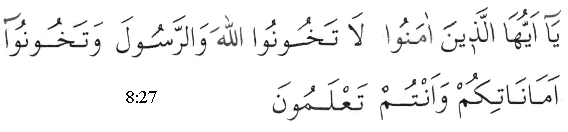 يَآ اَيُّهَا الَّذِينَ اٰمَنُوا لَا تَخُونُوا اللّٰهَ وَالرَّسُولَ وَتَخُونُوٓا
اَمَانَاتِكُمْ وَاَنْتُمْ تَعْلَمُونَ 8:27